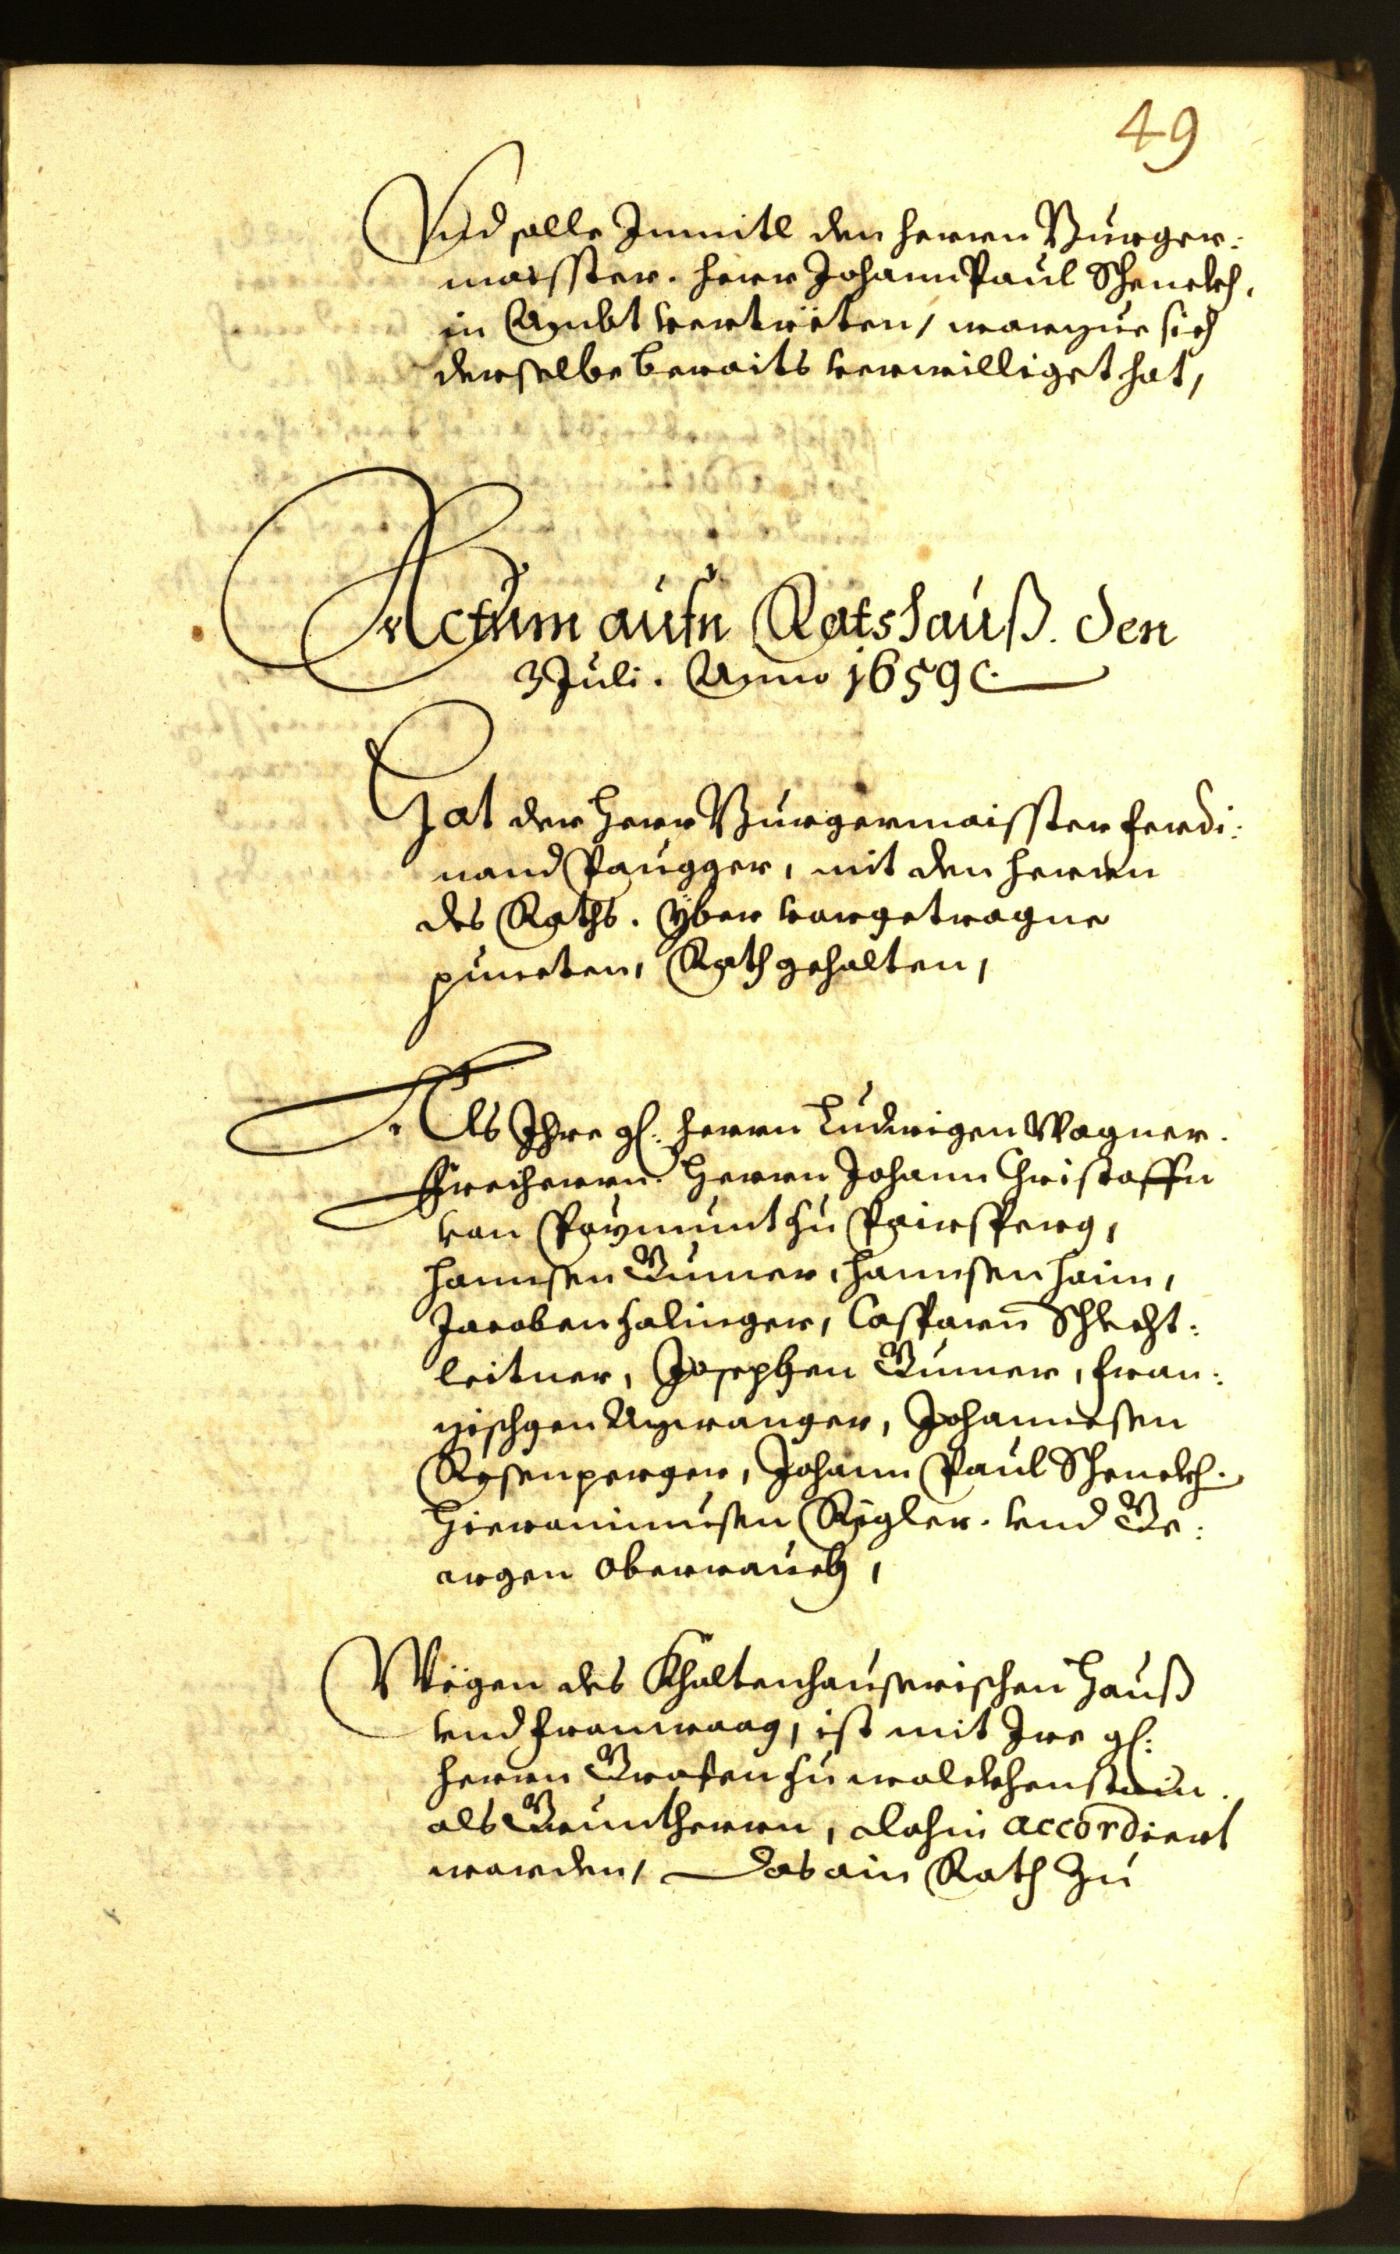 49
Vnd solle Inmitl den herrn Burger:
maisster. herr Johann Paul Schenckh,
in Ambt vertrëten, warzue sich
derselbe beraits verwilliget hat,
Actum aufm Ratshauß. den
3 Juli. Anno 1659 c.
Hat der Herr Burgermaisster Ferdi:
nand Paugger, mit den herrn
des Raths. yber vorgetragne
puncten, Rath gehalten,
Als Ihre gl: herrn Ludwigen Wagner.
Freiherrn. Herrn Johann Christoffn
von Paymunt zu Pairsperg,
hannsen Gumer, hannsen haim,
Jacoben Halinger, Casparn Schlecht:
leitner, Josephen Gumer, Fran:
zischgen Ayrwanger, Johannesen
Rosenperger, Johann Paul Schenckh.
Hieronimusen Rigler. vnd Ge:
orgen Oberrauch,
Wëgen des Khaltenhauserischen Hauß
vnd Fronwaag, ist mit Ire gl:
herrn Grafen zu wolckhenstain.
als Gruntherrn, dahin accordiert
worden, Das ain Rath Zu